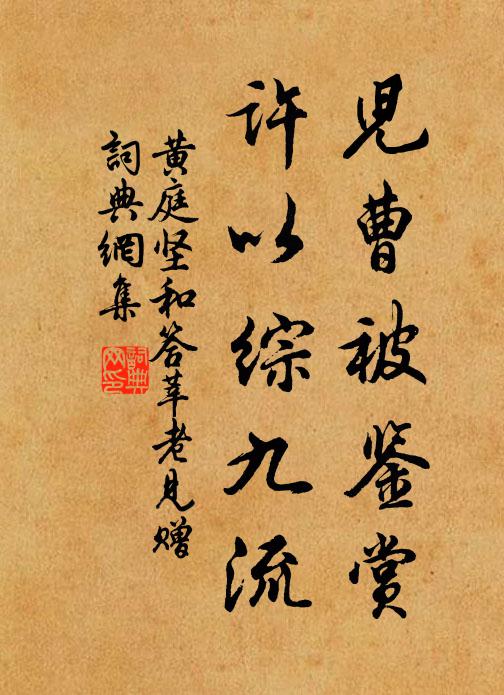 児曹被鉴赏
许以综九流
黄庭坚和答莘老见赠
詞典網集
詞典
网印